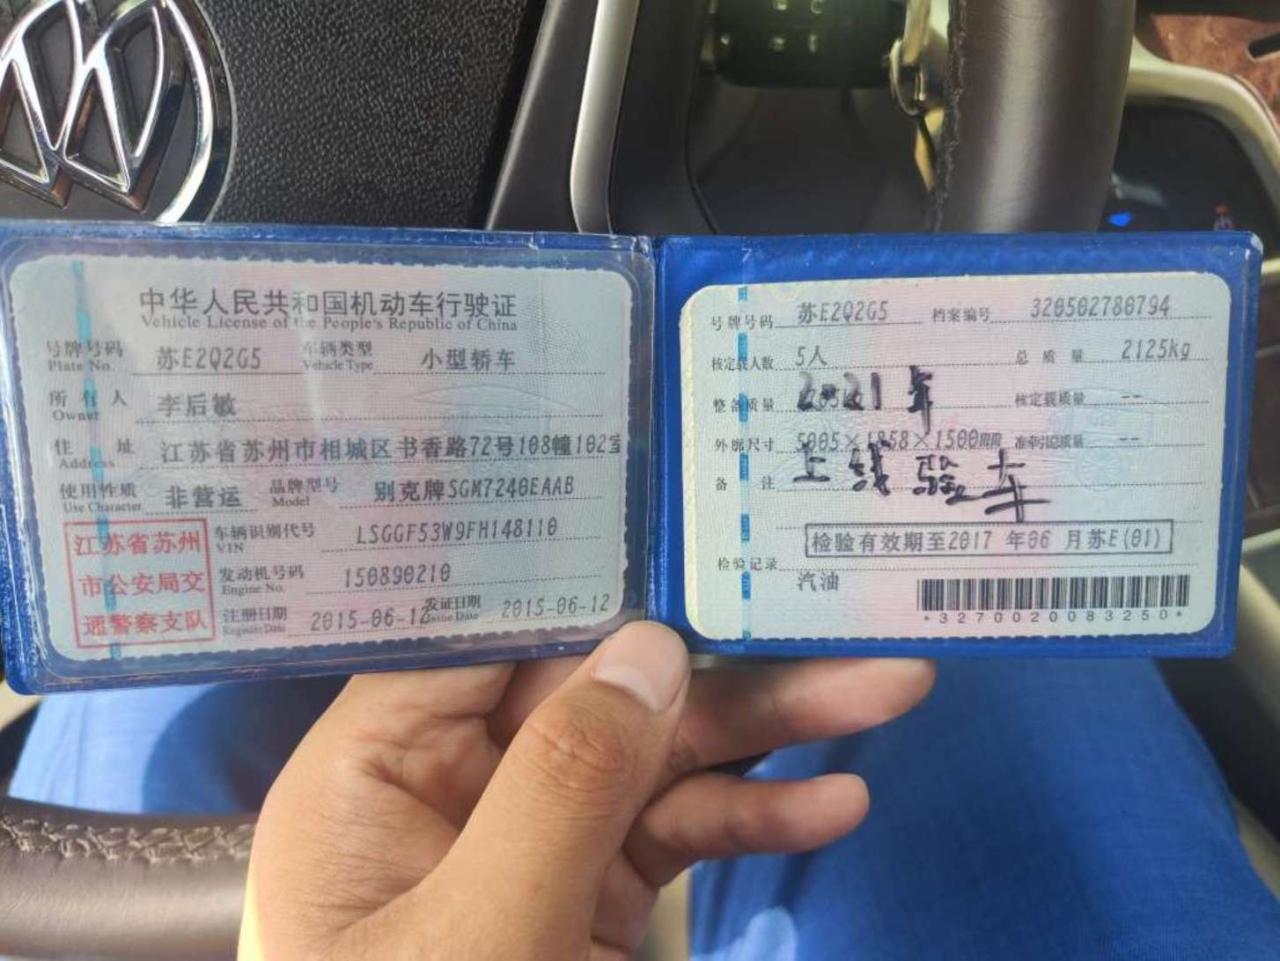 中华人民共和国机动车行驶证
Vehicle License of the People's Republic of China
号牌号码 Plate No. 苏E2Q2G5 车辆类型 Vehicle Type 小型轿车
所有人 Owner 李后敏
住址 Address 江苏省苏州市相城区书香路72号108幢102室
使用性质 Use Character 非营运 品牌型号 Model 别克牌SGM7240EAAB
江苏省苏州
市公安局交
通警察支队
车辆识别代号 VIN LSGGF53W9FH148110
发动机号码 Engine No. 150890210
注册日期 Register Date 2015-06-12 发证日期 Issue Date 2015-06-12
号牌号码 苏E2Q2G5 档案编号 320502780794
核定载人数 5人 总质量 2125kg
整备质量 2021年 核定载质量 --
外廓尺寸 5005×1858×1500mm 准牵引总质量 --
备注 上线验车
检验有效期至2017年06月苏E(01)
检验记录
汽油
*3270020083250*